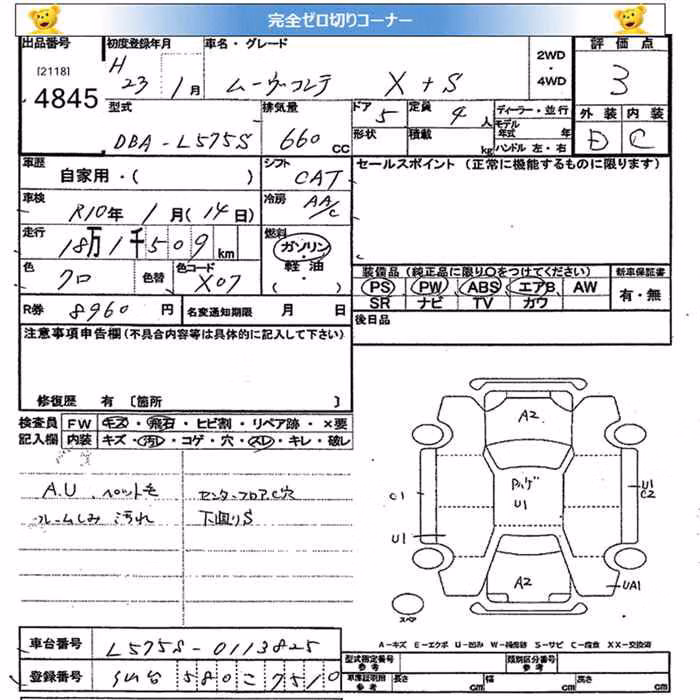 完全ゼロ切りコーナー
出品番号 初度登録年月 車名・グレード 2WD・4WD 評価点
[2118] 4845 H 23 1月 ムーヴコンテ X+S 3
型式 排気量 ドア 5 定員 4人 ディーラー・並行 外装 内装
DBA-L575S 660cc 形状 積載 kg モデル年式 年 D C
ハンドル 左・右
車歴 シフト セールスポイント(正常に機能するものに限ります)
自家用・( ) CAT
車検 冷房
R10年 1月(14日) AA/C
走行 燃料
18万1千509km ガソリン・軽油・( )
色 色替 色コード 装備品(純正品に限り○をつけてください) 新車保証書
クロ X07 PS PW ABS エアB AW 有・無
SR ナビ TV カワ
R券 8960円 名変通知期限 月 日 後日品
注意事項申告欄(不具合内容等は具体的に記入して下さい)
修復歴 有 [箇所 ]
検査員 FW キズ・飛石・ヒビ割・リペア跡・×要
記入欄 内装 キズ・汚レ・コゲ・穴・スレ・キレ・破レ
A.U ヘッド センターフロアC穴
フレームしみ 汚れ 下回りS
A2
U1
C1
U1
C2
U1
A2
UA1
スペア
A-キズ E-エクボ U-凹み W-補修跡 S-サビ C-腐食 XX-交換済
車台番号 L575S-0113825
型式指定番号 参考 類別区分番号 参考
登録番号 仙台 580 こ 7510
車庫証明用 参考 長さ cm 幅 cm 高さ cm